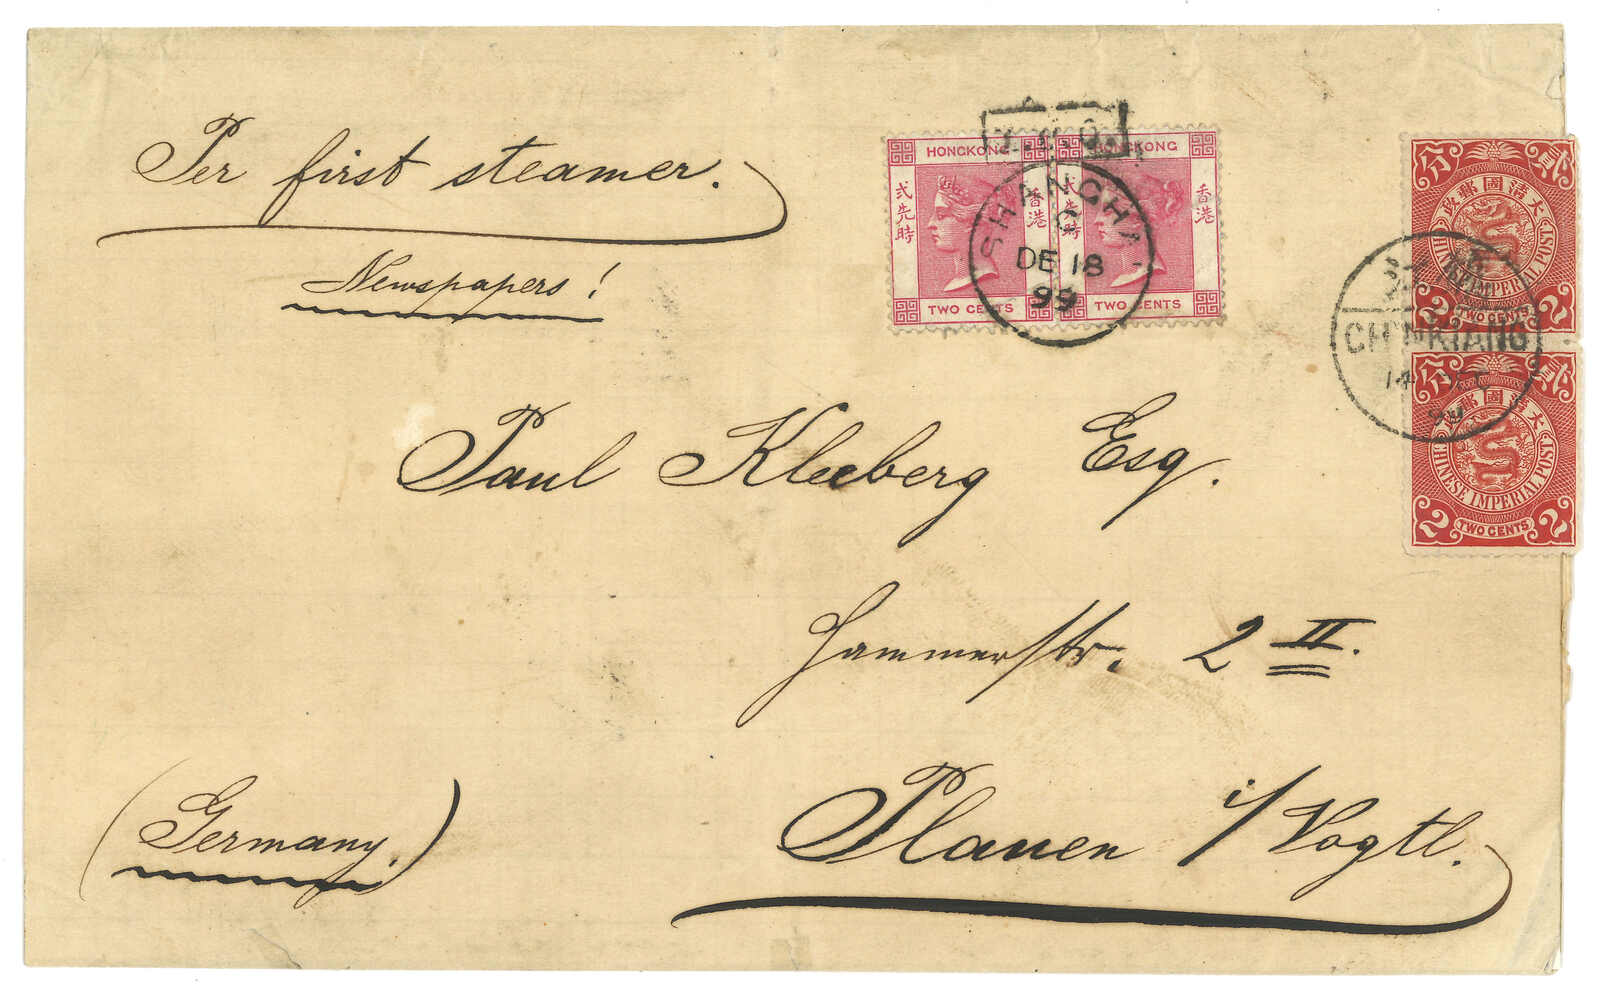 Per first steamer.
Newspapers!
I.P.O.
HONGKONG
HONGKONG
弍先時
香港
弍先時
香港
TWO CENTS
TWO CENTS
SHANGHAI
C
DE 18
99
分 貳
大清國郵政
CHINESE IMPERIAL POST
2 TWO CENTS 2
CHINKIANG
14
99
分 貳
大清國郵政
CHINESE IMPERIAL POST
2 TWO CENTS 2
Paul Kleeberg Esq.
Hammerstr. 2 II.
Plauen i/Vogtl.
(Germany.)